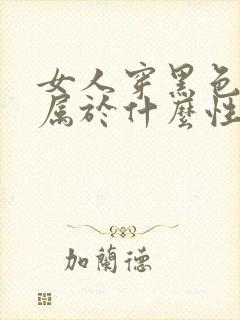 女人穿黑色
属於什麼性
加蘭德